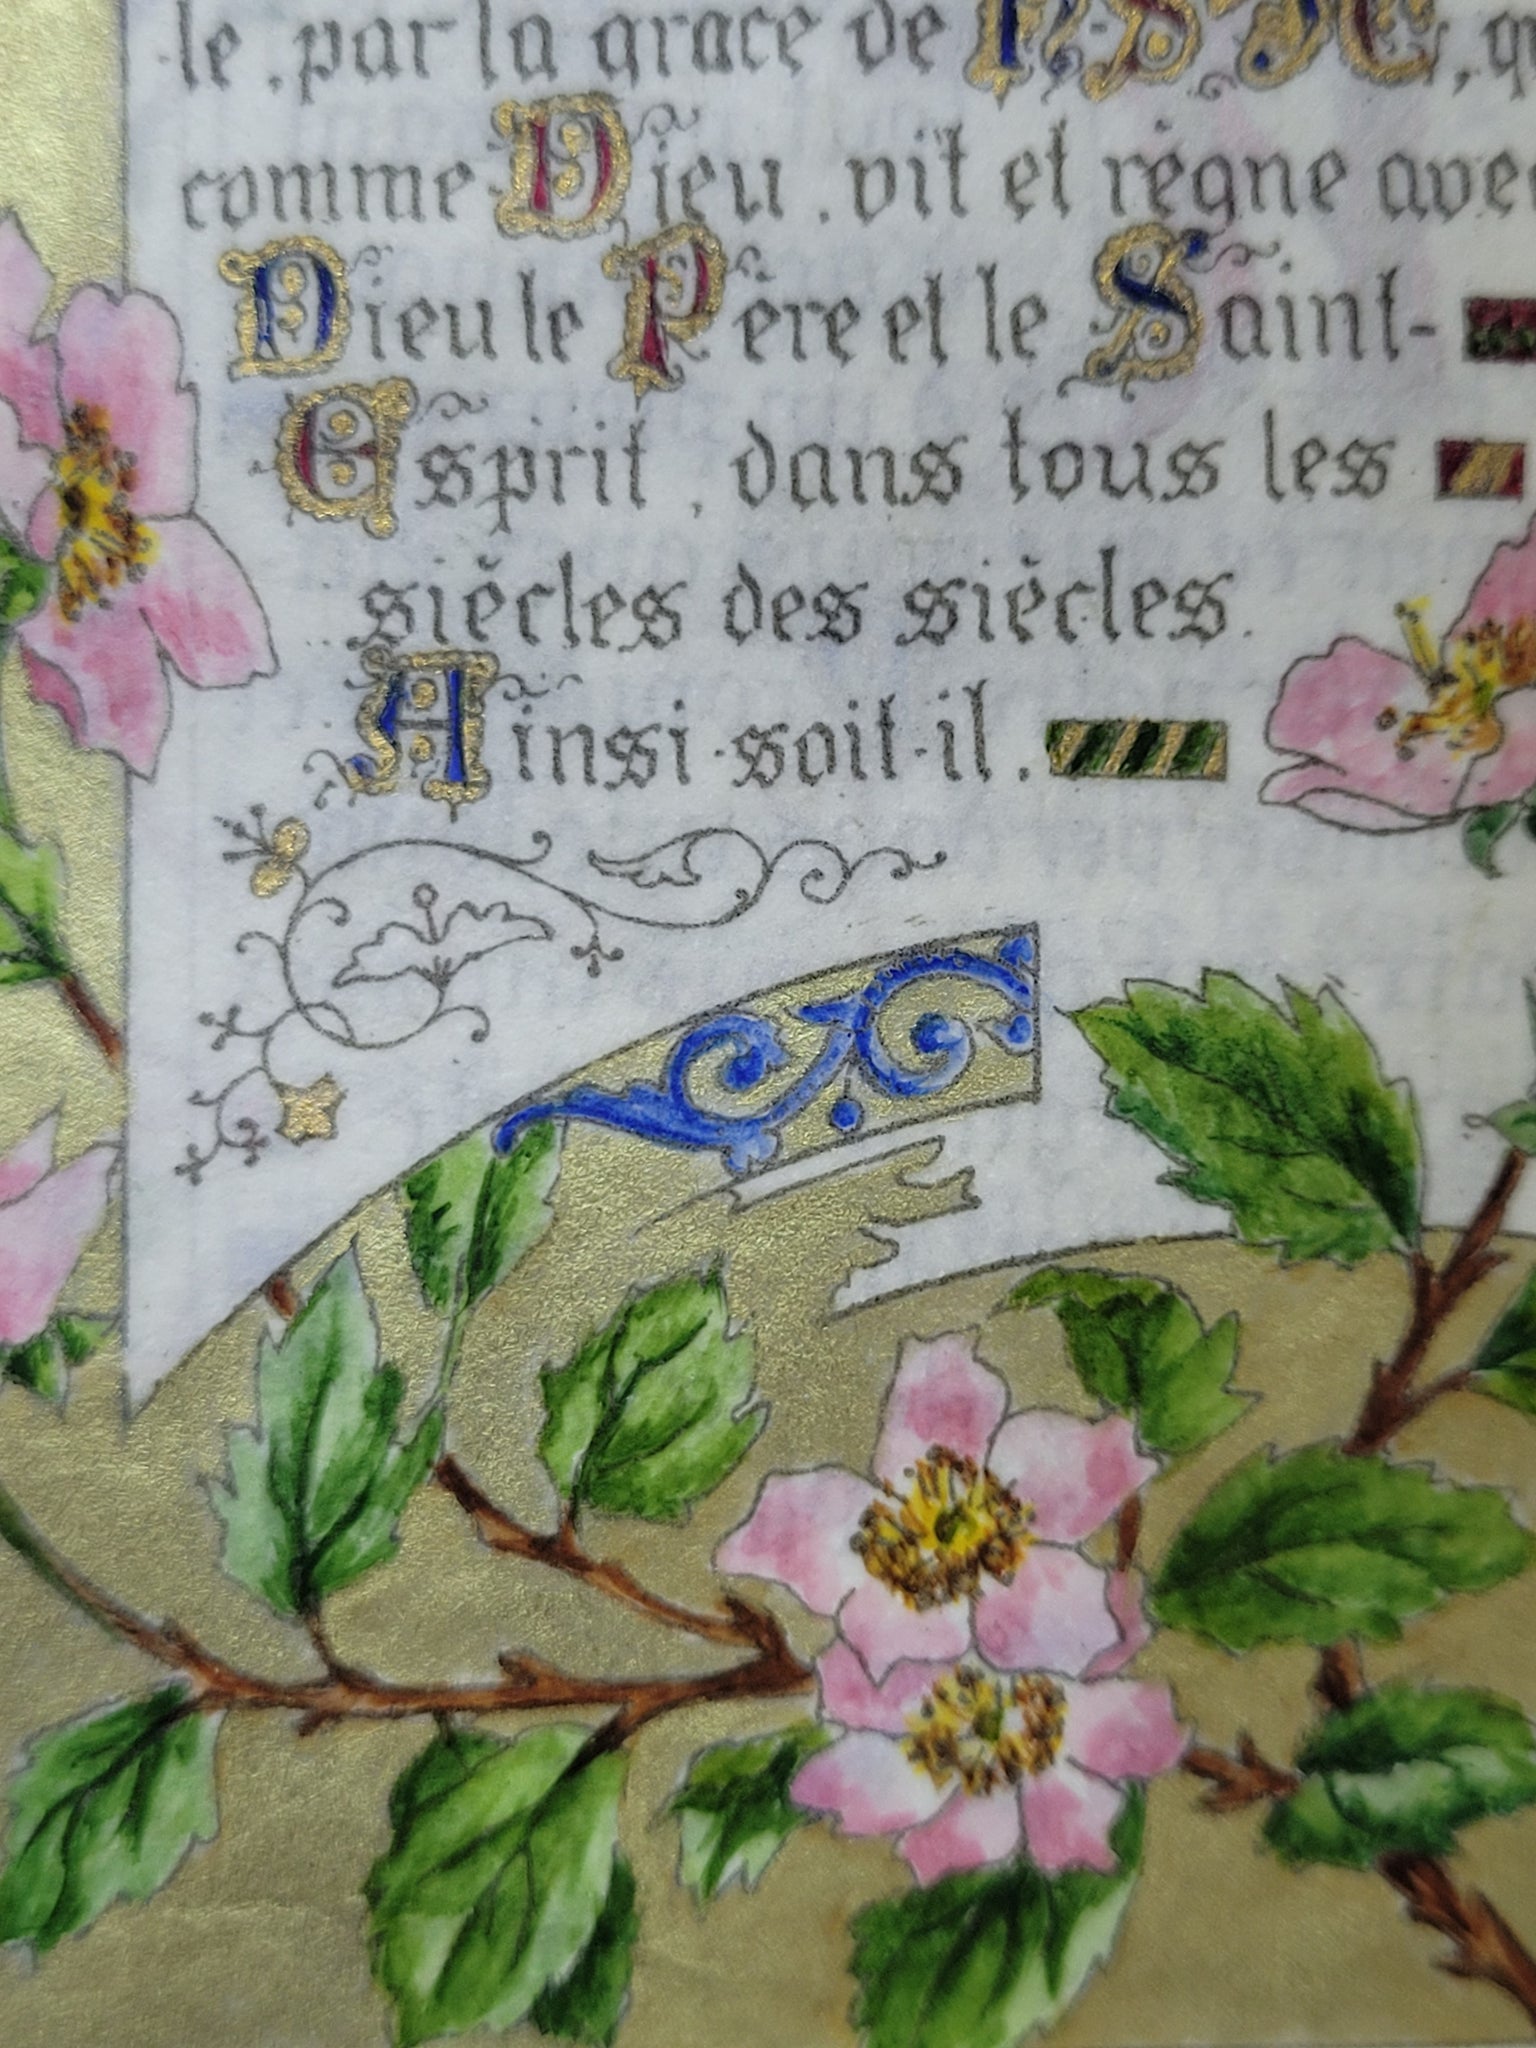 le, par la grâce de N.S.J.C., q
comme Dieu, vit et règne avec
Dieu le Père et le Saint-
Esprit, dans tous les
siècles des siècles.
Ainsi-soit-il.